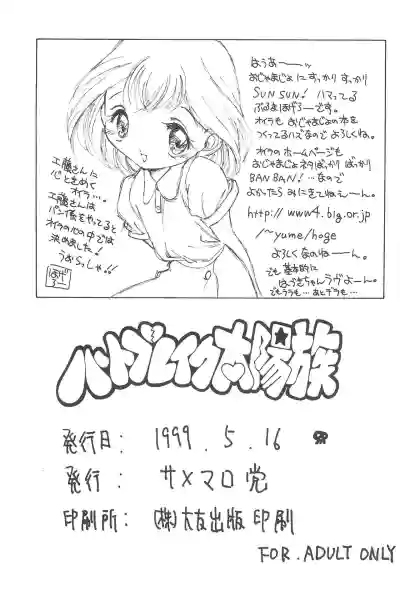 はうあーーッ
おじゃまじょに すっかり すっかり
SUN SUN! ハマってる
ぶるまほげろーです。
オイラも おじゃまじょの本を
つくってるハズなので よろしくね。
オイラのホームページも
おじゃまじょネタばっかり ばっかり
BAN BAN! …なので
よかったら みにきてねえーん。
http://www4.big.or.jp
/~yume/hoge
よろしくなのねーーん。
でも 基本的に
はづきちゃんラヴよーん。
でもララも…あとデラも…
工藤さんに
心ときめく
オイラ…。
工藤さんは
パンツ係をやってると
オイラの心の中では
決めました!
うおらっしゃ!!
ほげろー
ハートブレイク太陽族
発行日: 1999.5.16
発行: サメマロ党
印刷所: (株)大友出版印刷
FOR.ADULT ONLY